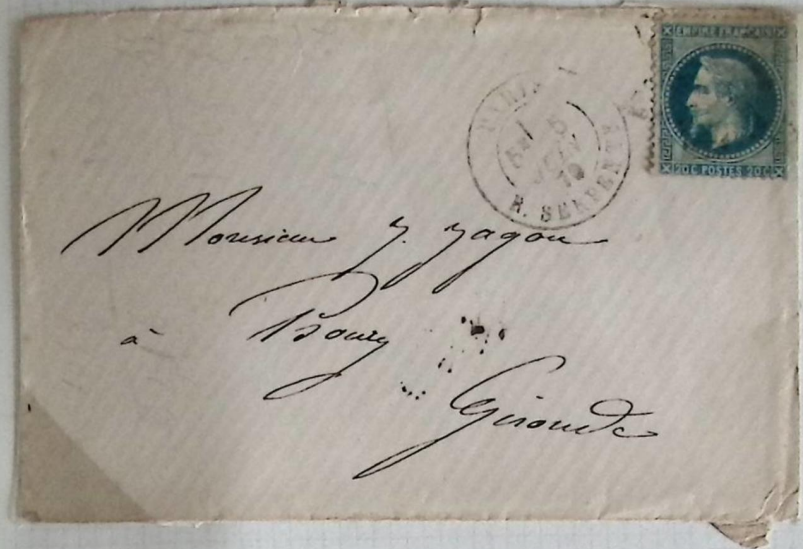 EMPIRE FRANÇAIS
20C POSTES 20C
PARIS
5
R. SERPENTE
Monsieur J. Jagou
à Bourg
Gironde